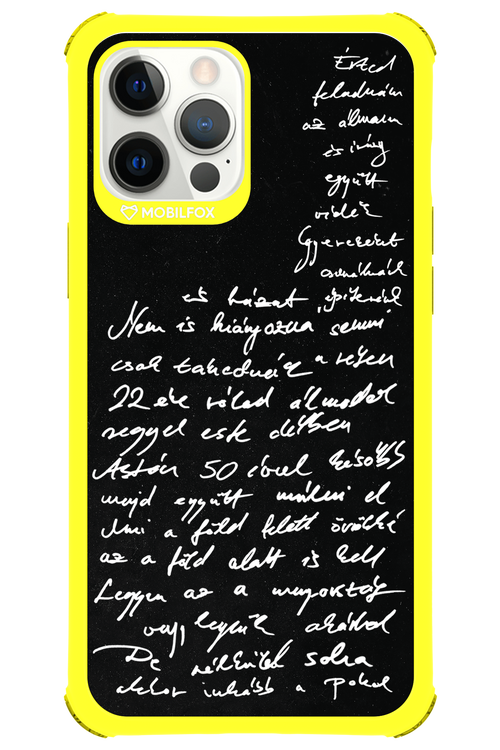 MOBILFOX
Érted
feladnám
az álmam
és így
együtt
vidék
Gyerekeket
csinálnánk
és házat építenénk
Nem is hiányozna semmi
csak takednék a réten
22 éve rólad álmodok
reggel este délben
Aztán 50 évvel később
majd együtt múlni el
Ami a föld felett örökké
az a föld alatt is kell
Legyen az a menyország
vagy legyünk akárhol
De nélküled soha
akkor inkább a Pokol